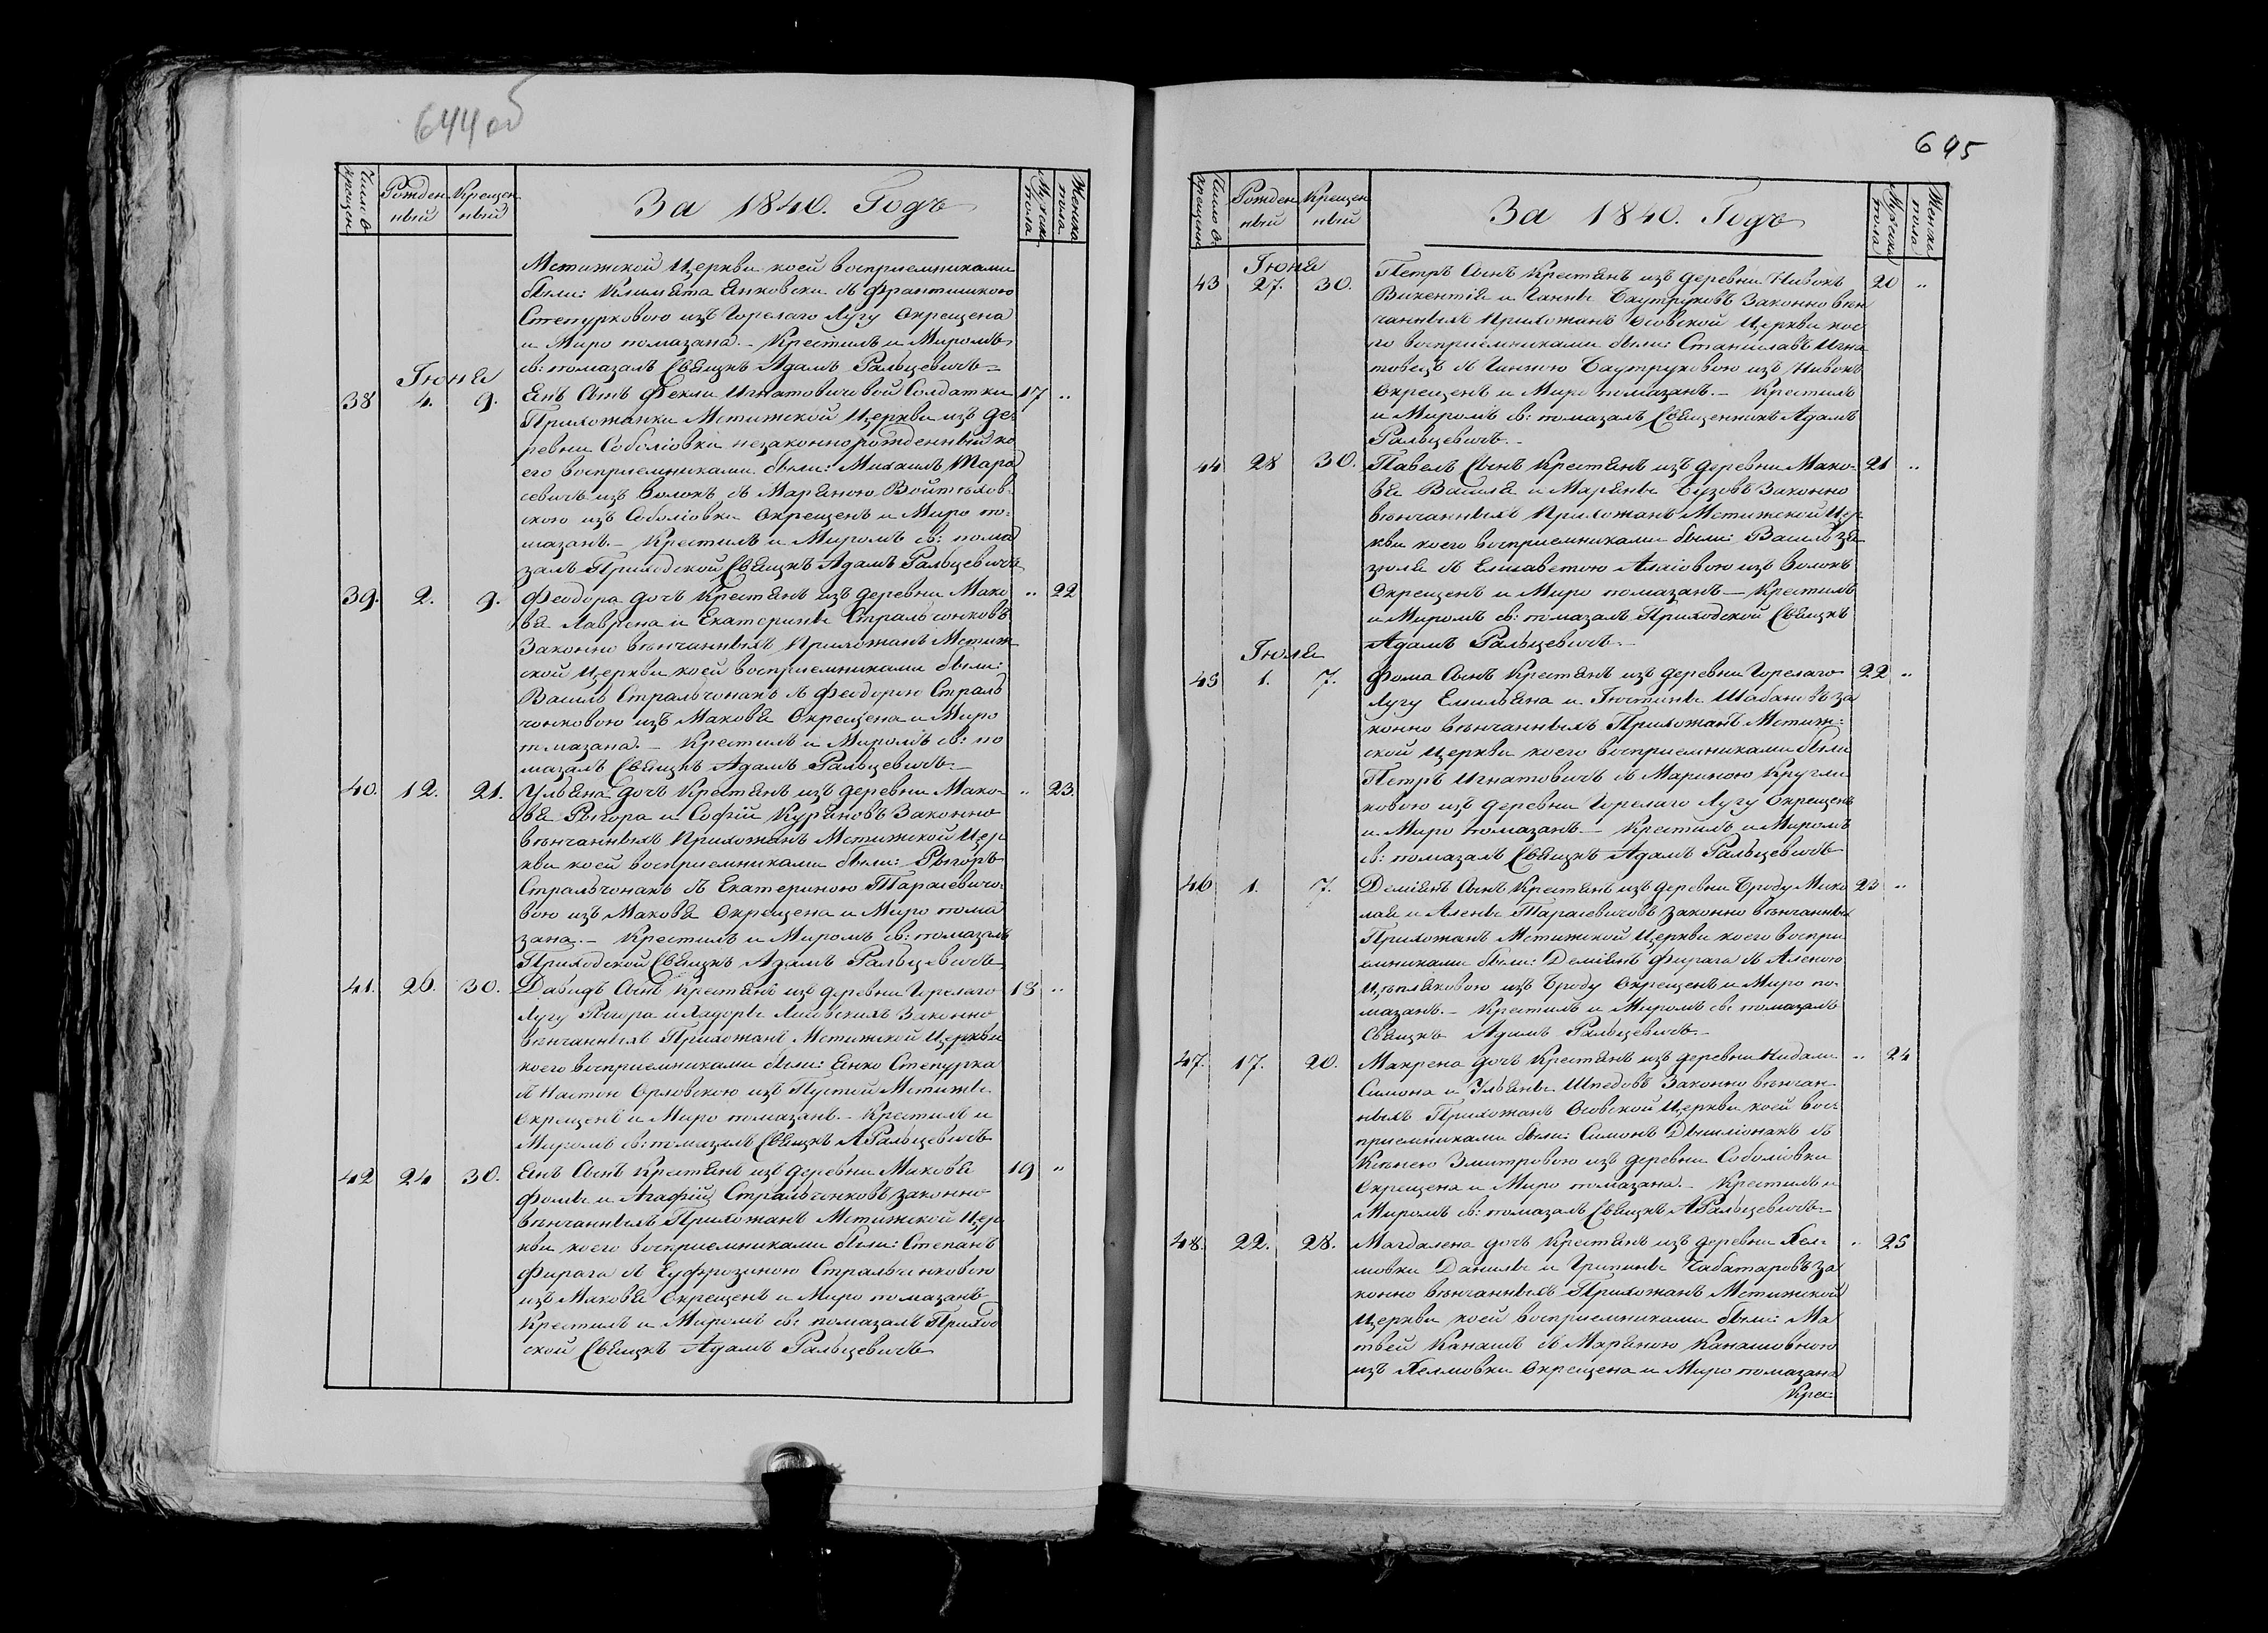 644 об
Число крещен.
Рожден
ный
Крещен
ный
За 1840. Годъ
Мужска
пола
Женска
пола
Мстижской Церкви коей восприемниками
были: Климята Янковски съ Франтишкою
Степурковою изъ Горелаго Лугу Окрещена
и Миро помазана. – Крестилъ и Миромъ
св: помазалъ Свящкъ Адамъ Ральцевичъ –
Іюня
38 4. 9. Янъ Сынъ Феклы Игнатовичовой Солдатки 17 "
Прихожанки Мстижской Церкви изъ де-
ревни Соболіовки незаконнорожденный ко
его восприемниками были: Михаилъ Тара
севичъ изъ Волокъ съ Маряною Войтѣхов-
скою изъ Соболіовки Окрещенъ и Миро по-
мазанъ. – Крестилъ и Миромъ св: пома
залъ Приходской Свящкъ Адамъ Ральцевичъ
39. 2. 9. Феодора дочъ Крестянъ изъ деревни Мако " 22
вя Лаврена и Екатерины Стральчонковъ
Законно вѣнчанныхъ Прихожанъ Мстиж-
ской Церкви коей восприемниками были:
Василь Стральчонакъ съ Феодорою Страль
чонковою изъ Маковя Окрещена и Миро
помазана. – Крестилъ и Миромъ св: по
мазалъ Свящкъ Адамъ Ральцевичъ. –
40. 12. 21. Ульяна дочъ Крестянъ изъ деревни Мако- " 23.
вя Рыгора и Софіи Куряновъ Законно
вѣнчанныхъ Прихожанъ Мстижской Цер
кви коей восприемниками были: Рыгоръ
Стральчонакъ съ Екатериною Тарасевичо-
вою изъ Маковя Окрещена и Миро пома
зана. – Крестилъ и Миромъ св: помазалъ
Приходской Свящкъ Адамъ Ральцевичъ
41. 26. 30. Давидъ Сынъ Крестянъ изъ деревни Горелаго 18 "
Лугу Рыгора и Хадоры Лисовскихъ Законно
вѣнчанныхъ Прихожанъ Мстижской Церкви
коего восприемниками были: Янко Степурка
съ Настою Орловскою изъ Пустой Мстижи
Окрещенъ и Миро помазанъ. – Крестилъ и
Миромъ св: помазалъ Свящкъ А Ральцевичъ
42 24 30. Янъ Сынъ Крестянъ изъ деревни Маковя 19 "
Фомы и Агафіи Стральчонковъ законно
вѣнчанныхъ Прихожанъ Мстижской Цер
кви коего восприемниками были: Степанъ
Фирага съ Еуфрозиною Стральчонковою
изъ Маковя Окрещенъ и Миро помазанъ
Крестилъ и Миромъ св: помазалъ Приход
ской Свящкъ Адамъ Ральцевичъ
695
Число крещен.
Рожден
ный
Крещен
ный
За 1840. Годъ
Мужеска
пола
Женска
пола
Іюня
43 27. 30. Петръ Сынъ Крестянъ изъ деревни Нивокъ 20 "
Викентія и Ганны Баутруковъ Законно вѣн
чанныхъ Прихожанъ Осовской Церкви кое
го восприемниками были: Станиславъ Игна
товецъ съ Ганною Баутруковою изъ Нивокъ
Окрещенъ и Миро помазанъ. – Крестилъ
и Миромъ св: помазалъ Священникъ Адамъ
Ральцевичъ. –
44 28 30. Павелъ Сынъ Крестянъ изъ деревни Мако- 21 "
вя Василя и Маряны Бузовъ Законно
вѣнчанныхъ Прихожанъ Мстижской Цер
кви коего восприемниками были: Василь Зя
зюля съ Елисаветою Аласовою изъ Волокъ
Окрещенъ и Миро помазанъ – Крестилъ
и Миромъ св: помазалъ Приходской Свящкъ
Адамъ Ральцевичъ. –
Іюля
45 1. 7. Фома Сынъ Крестянъ изъ деревни Горелаго 22 "
Лугу Емильяна и Іюстины Шабановъ за
конно вѣнчанныхъ Прихожанъ Мстиж-
ской Церкви коего восприемниками были
Петръ Игнатовичъ съ Мариною Кругли
ковою изъ деревни Горелаго Лугу Окрещенъ
и Миро помазанъ. – Крестилъ и Миромъ
св: помазалъ Свящкъ Адамъ Ральцевичъ
46 1. 7. Деміянъ Сынъ Крестянъ изъ деревни Броду Мико 23 "
лая и Алены Тарасевичовъ законно вѣнчанны
Прихожанъ Мстижской Церкви коего воспри
емниками были: Деміянъ Фирага съ Аленою
Цѣпляковою изъ Броду Окрещенъ и Миро по-
мазанъ. – Крестилъ и Миромъ св: помазалъ
Свящкъ Адамъ Ральцевичъ. –
47. 17. 20. Макрена дочъ Крестянъ изъ деревни Нидали " 24
Симона и Ульяны Шпедовъ Законно вѣнчан
ныхъ Прихожанъ Осовской Церкви коей вос
приемниками были: Симонъ съ
Змитровою изъ деревни Соболіовки
Окрещена и Миро помазана. – Крестилъ и
Миромъ св: помазалъ Свящкъ А Ральцевичъ. –
48. 22. 28. Магдалена дочъ Крестянъ изъ деревни Хел- " 25
мовки Данилы и Грипины Чабатаровъ за
конно вѣнчанныхъ Прихожанъ Мстижской
Церкви коей восприемниками были: Ма
твей Канашъ съ Маряною Канашовною
изъ Хелмовки Окрещена и Миро помазана
Крес-